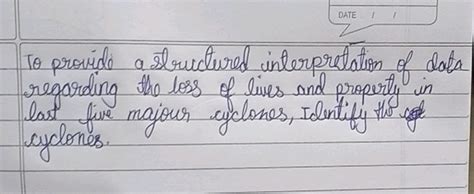 DATE / /
To provide a structured interpretation of data
regarding the loss of lives and property in
last five majour cyclones, Identify the
cyclones.